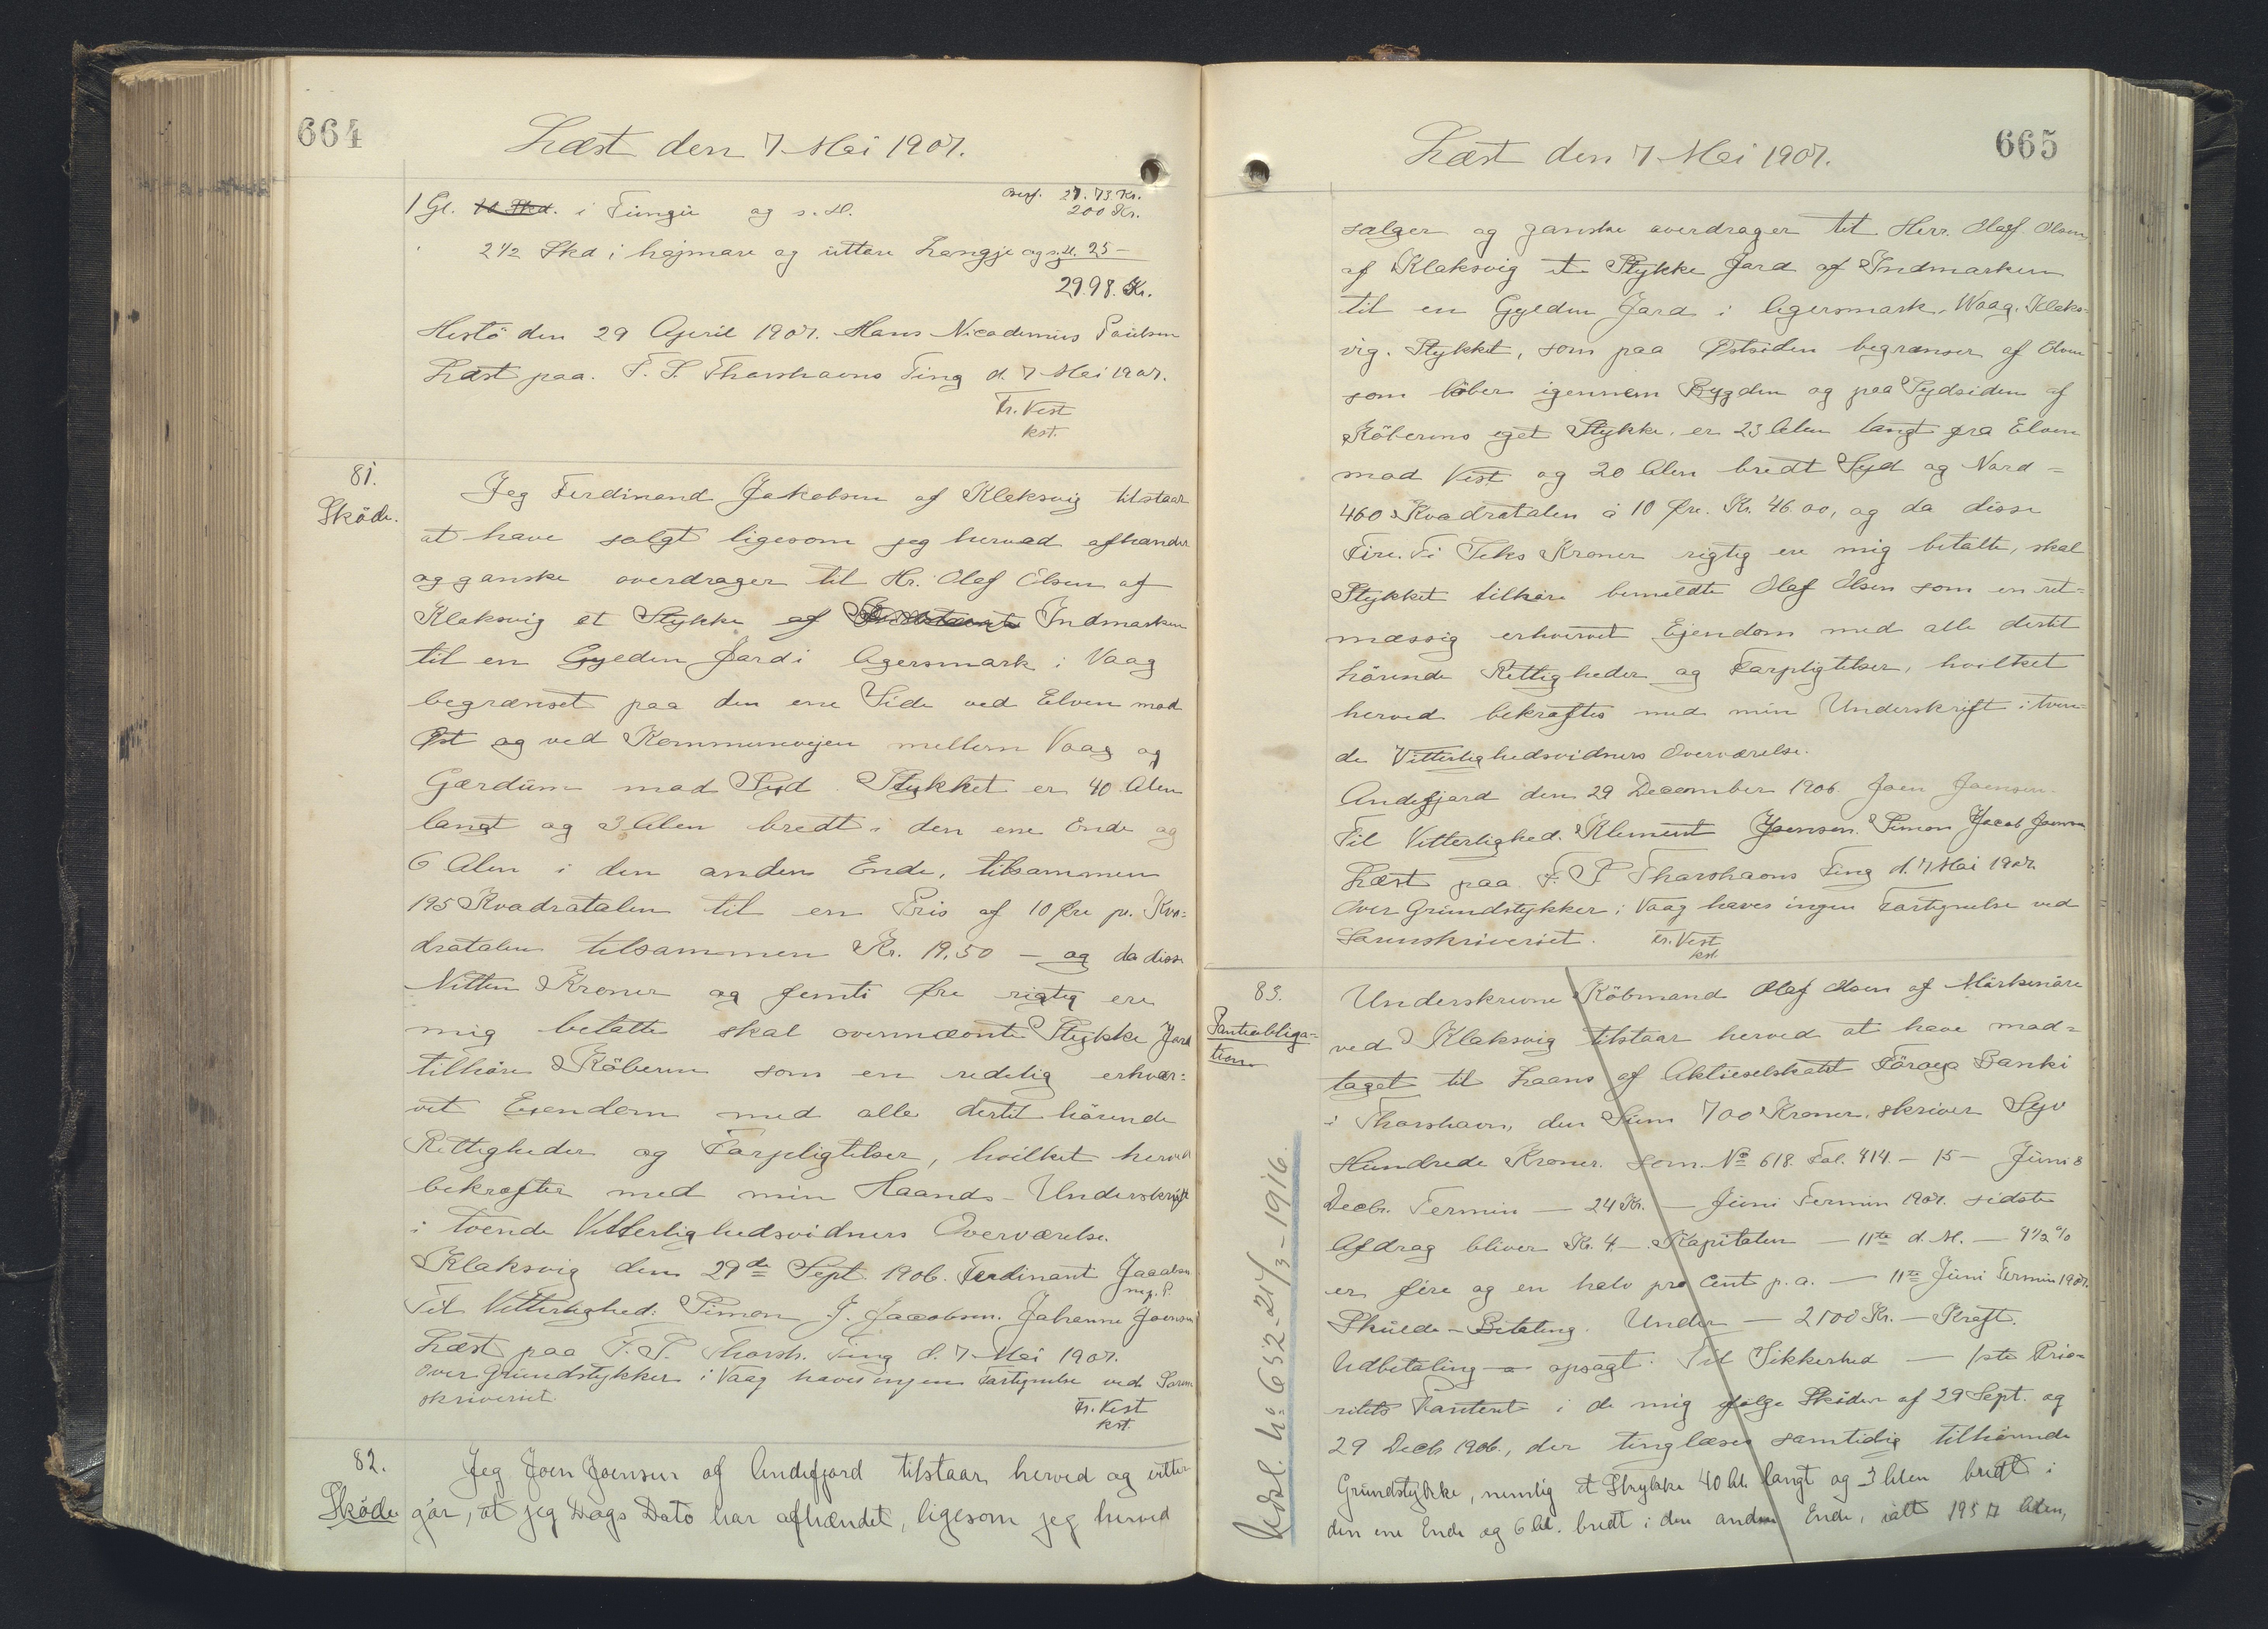 664
Læst den 7 Mai 1907.
Overf. 27.73 Kr.
1 Gl. i Tungu og s. st. 200 Kr.
2 1/2 Skd i hajmare og uttare Langje og s. st. 25 —
29.98. Kr.
Hestö den 29 April 1907. Hans Nicodemus Poulsen
Læst paa F. S. Thorshavns Ting d. 7 Mai 1907.
Fr. Vest
kst.
81.
Sköde.
Jeg Ferdinand Jakobsen af Klaksvig tilstaar
at have solgt ligesom jeg herved afhænder
og ganske overdrager til Hr. Olaf Olsen af
Klaksvig et Stykke af Indmarken
til en Gylden Jord i Agersmark i Vaag
begrænset paa den ene Side ved Elven mod
Øst og ved Kommunevejen mellem Vaag og
Gærdum mod Syd. Stykket er 40 Alen
langt og 3 Alen bredt i den ene Ende og
6 Alen i den anden Ende, tilsammen
195 Kvadratalen til en Pris af 10 Øre pr. Kva=
dratalen tilsammen Kr. 19,50 — og da disse
Nitten Kroner og femti Øre rigtig ere
mig betalte skal ovennævnte Stykke Jord
tilhøre Köberen som en redelig erhver=
vet Ejendom med alle dertil hörende
Rettigheder og Forpligtelser, hvilket herved
bekræfter med min Haands-Underskrift
i tvende Vitterlighedsvidners Overværelse.
Klaksvig den 29de Sept 1906. Ferdinant Jacobsen
m. p. P.
Til Vitterlighed: Simon J. Jacobsen. Johanne Joensen
Læst paa F. S. Thorsh. Ting d. 7 Mai 1907.
Over Grundstykker i Vaag haves ingen Fortegnelse ved Soren
skriveriet.
Fr. Vest
kst.
82.
Sköde
Jeg Joen Joensen af Andefjord tilstaar herved og vitter
gör, at jeg Dags Dato har afhændet, ligesom jeg herved
665
Læst den 7 Mai 1907.
sælger og ganske overdrager til Herr. Olaf Olsen,
af Klaksvig et Stykke Jord af Indmarken
til en Gylden Jord i Agersmark, Waag. Klaks=
vig. Stykket, som paa Østsiden begrænser af Elven
som löber igennem Bygden og paa Sydsiden af
Köberens eget Stykke, er 23 Alen langt fra Elven
mod Vest og 20 Alen bredt Syd og Nord =
460 Kvadratalen à 10 Øre. Kr. 46.00, og da disse
Fire. Ti Seks Kroner rigtig ere mig betalte, skal
Stykket tilhøre bemeldte Olaf Olsen som en ret=
mæssig erhvervet Ejendom med alle dertil
hörende Rettigheder og Forpligtelser, hvilket
herved bekræftes med min Underskrift i tven=
de Vitterlighedsvidners Overværelse.
Andefjord den 29 December 1906. Joen Joensen.
Til Vitterlighed. Klement Joensen. Simon Jacob Joensen
Læst paa F. S Thorshavns Ting d. 7 Mai 1907.
Over Grundstykker i Vaag haves ingen Fortegnelse ved
Sorenskriveriet. Fr. Vest
kst.
83.
Pantobliga=
tion
Underskrevne Köbmand Olaf Olsen af Mörkenöre
ved Klaksvig tilstaar herved at have mod=
taget til Laans af Aktieselskabet Föroya Banki
i Thorshavn, den Sum 700 Kroner, skriver Syv
Hundrede Kroner. som No 618. Fol. 414. — 15 — Juni &
Decbr. Termin — 24 Kr. — Juni Termin 1907. sidste
Afdrag bliver Kr. 4. — Kapitalen — 11te d. M. — 4 1/2 %
er fire og en halv pro Cent p. a. — 11te Juni Termin 1907.
Skulde-Betaling. Under — 2100 Kr. — Kraft.
Udbetaling — opsagt. Til Sikkerhed — 1ste Prio=
ritets Panteret i de mig ifølge Sköder af 29 Sept. og
29 Decb 1906., der tinglæses samtidig tilhörende
Grundstykke, nemlig et Strykke 40 Al. langt og 3 Alen bredt i
den ene Ende og 6 Al. bredt i den anden Ende, ialt 195 □ Alen,
Udsl. No 652 - 21/3 - 1916.